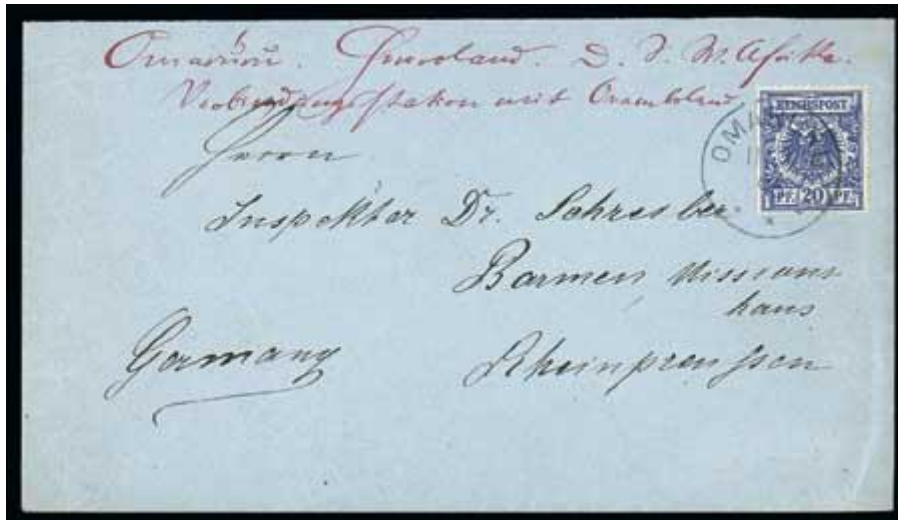 Omaruru. Hereroland. D. S. W. Afrika.
Verbindungsstation mit Ovamboland
REICHSPOST
OMA
PF. 20 PF.
Herrn
Inspektor Dr. Schreiber
Barmen Missions
haus
Germany Rheinpreussen